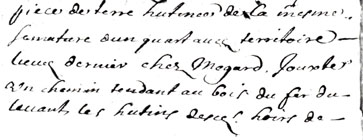 piece de terre hutinee de la mesme
semature dun quart audt territoire
lieux dernier chez Megard. Jouxter
un chemin tendant au bois du fer du
levant les hutins desdts hoirs de